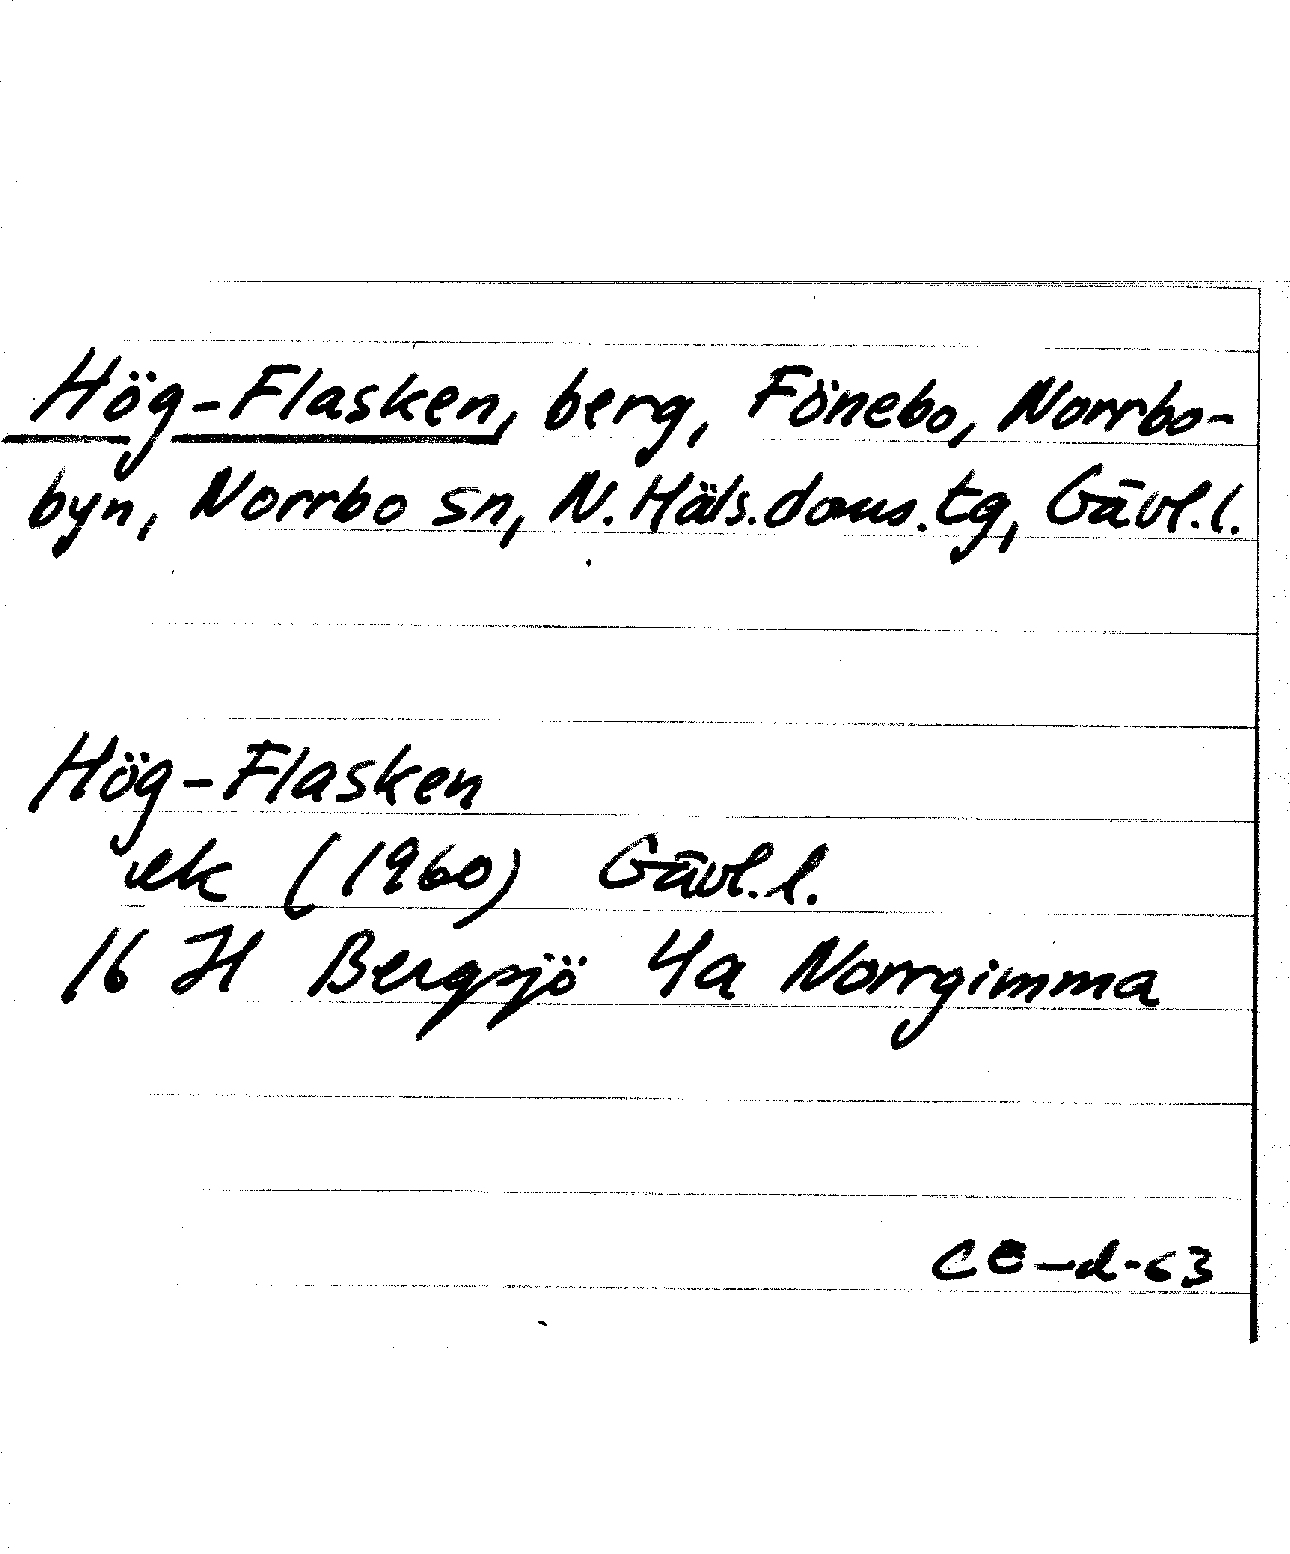 Hög-Flasken, berg, Fönebo, Norrbo-
byn, Norrbo sn, N. Häls. doms. tg, Gävl. l.
Hög-Flasken
ek (1960) Gävl. l.
16 H Bergsjö 4a Norrgimma
CE-d-63